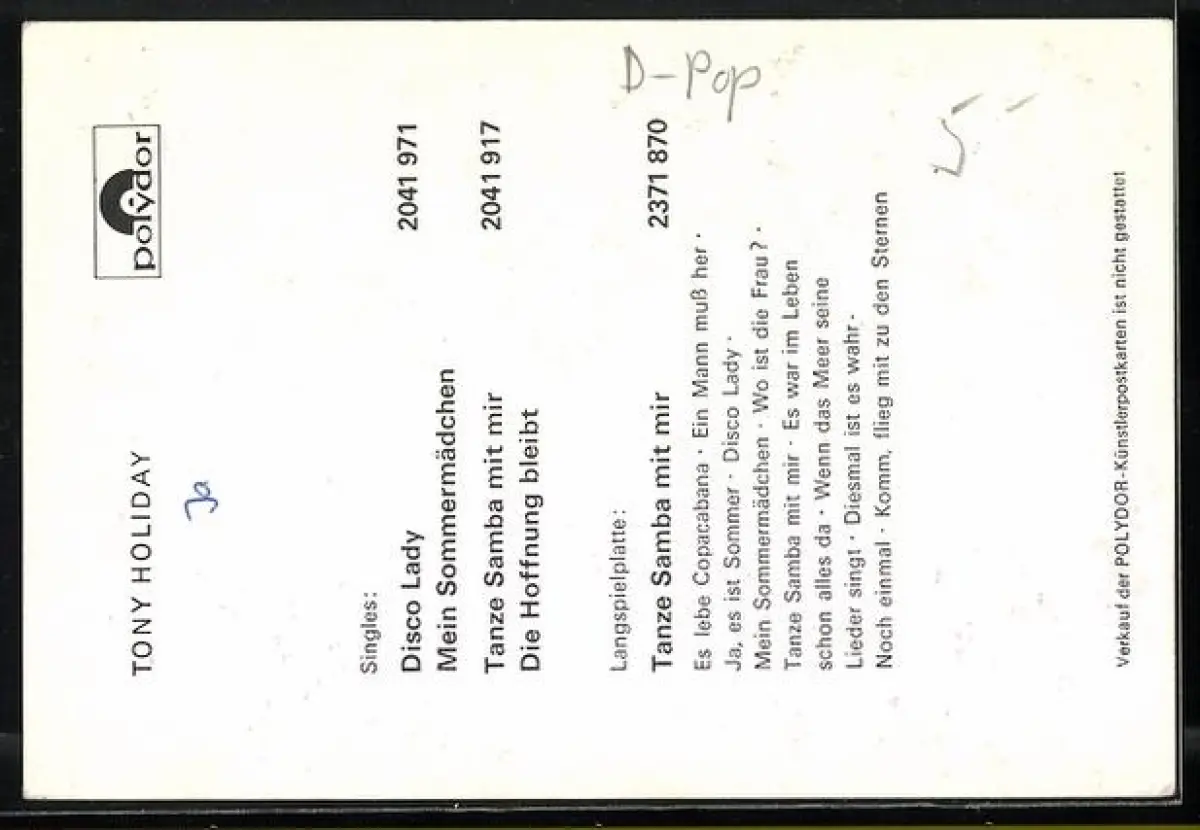 polydor
TONY HOLIDAY
Ja
Singles:
Disco Lady 2041 971
Mein Sommermädchen
Tanze Samba mit mir 2041 917
Die Hoffnung bleibt
D-Pop
Langspielplatte:
Tanze Samba mit mir 2371 870
Es lebe Copacabana · Ein Mann muß her ·
Ja, es ist Sommer · Disco Lady ·
Mein Sommermädchen · Wo ist die Frau? ·
Tanze Samba mit mir · Es war im Leben
schon alles da · Wenn das Meer seine
Lieder singt · Diesmal ist es wahr ·
Noch einmal · Komm, flieg mit zu den Sternen
Verkauf der POLYDOR-Künstlerpostkarten ist nicht gestattet